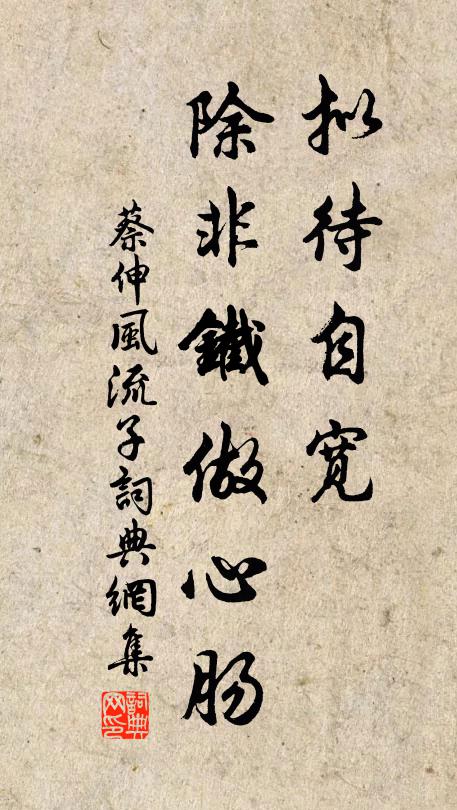 拟待自寛
除非鐵做心肠
蔡伸風流子詞典網集
詞典网印